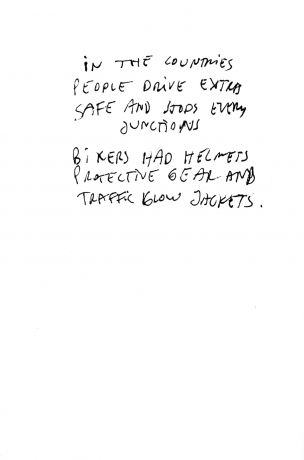 iN THE COUNTRIES
PEOPLE DRIVE EXTRA
SAFE AND STOPS EVERY
JUNCTIONS
BIKERS HAD HELMETS
PROTECTIVE GEAR AND
TRAFFIC GLOW JACKETS.